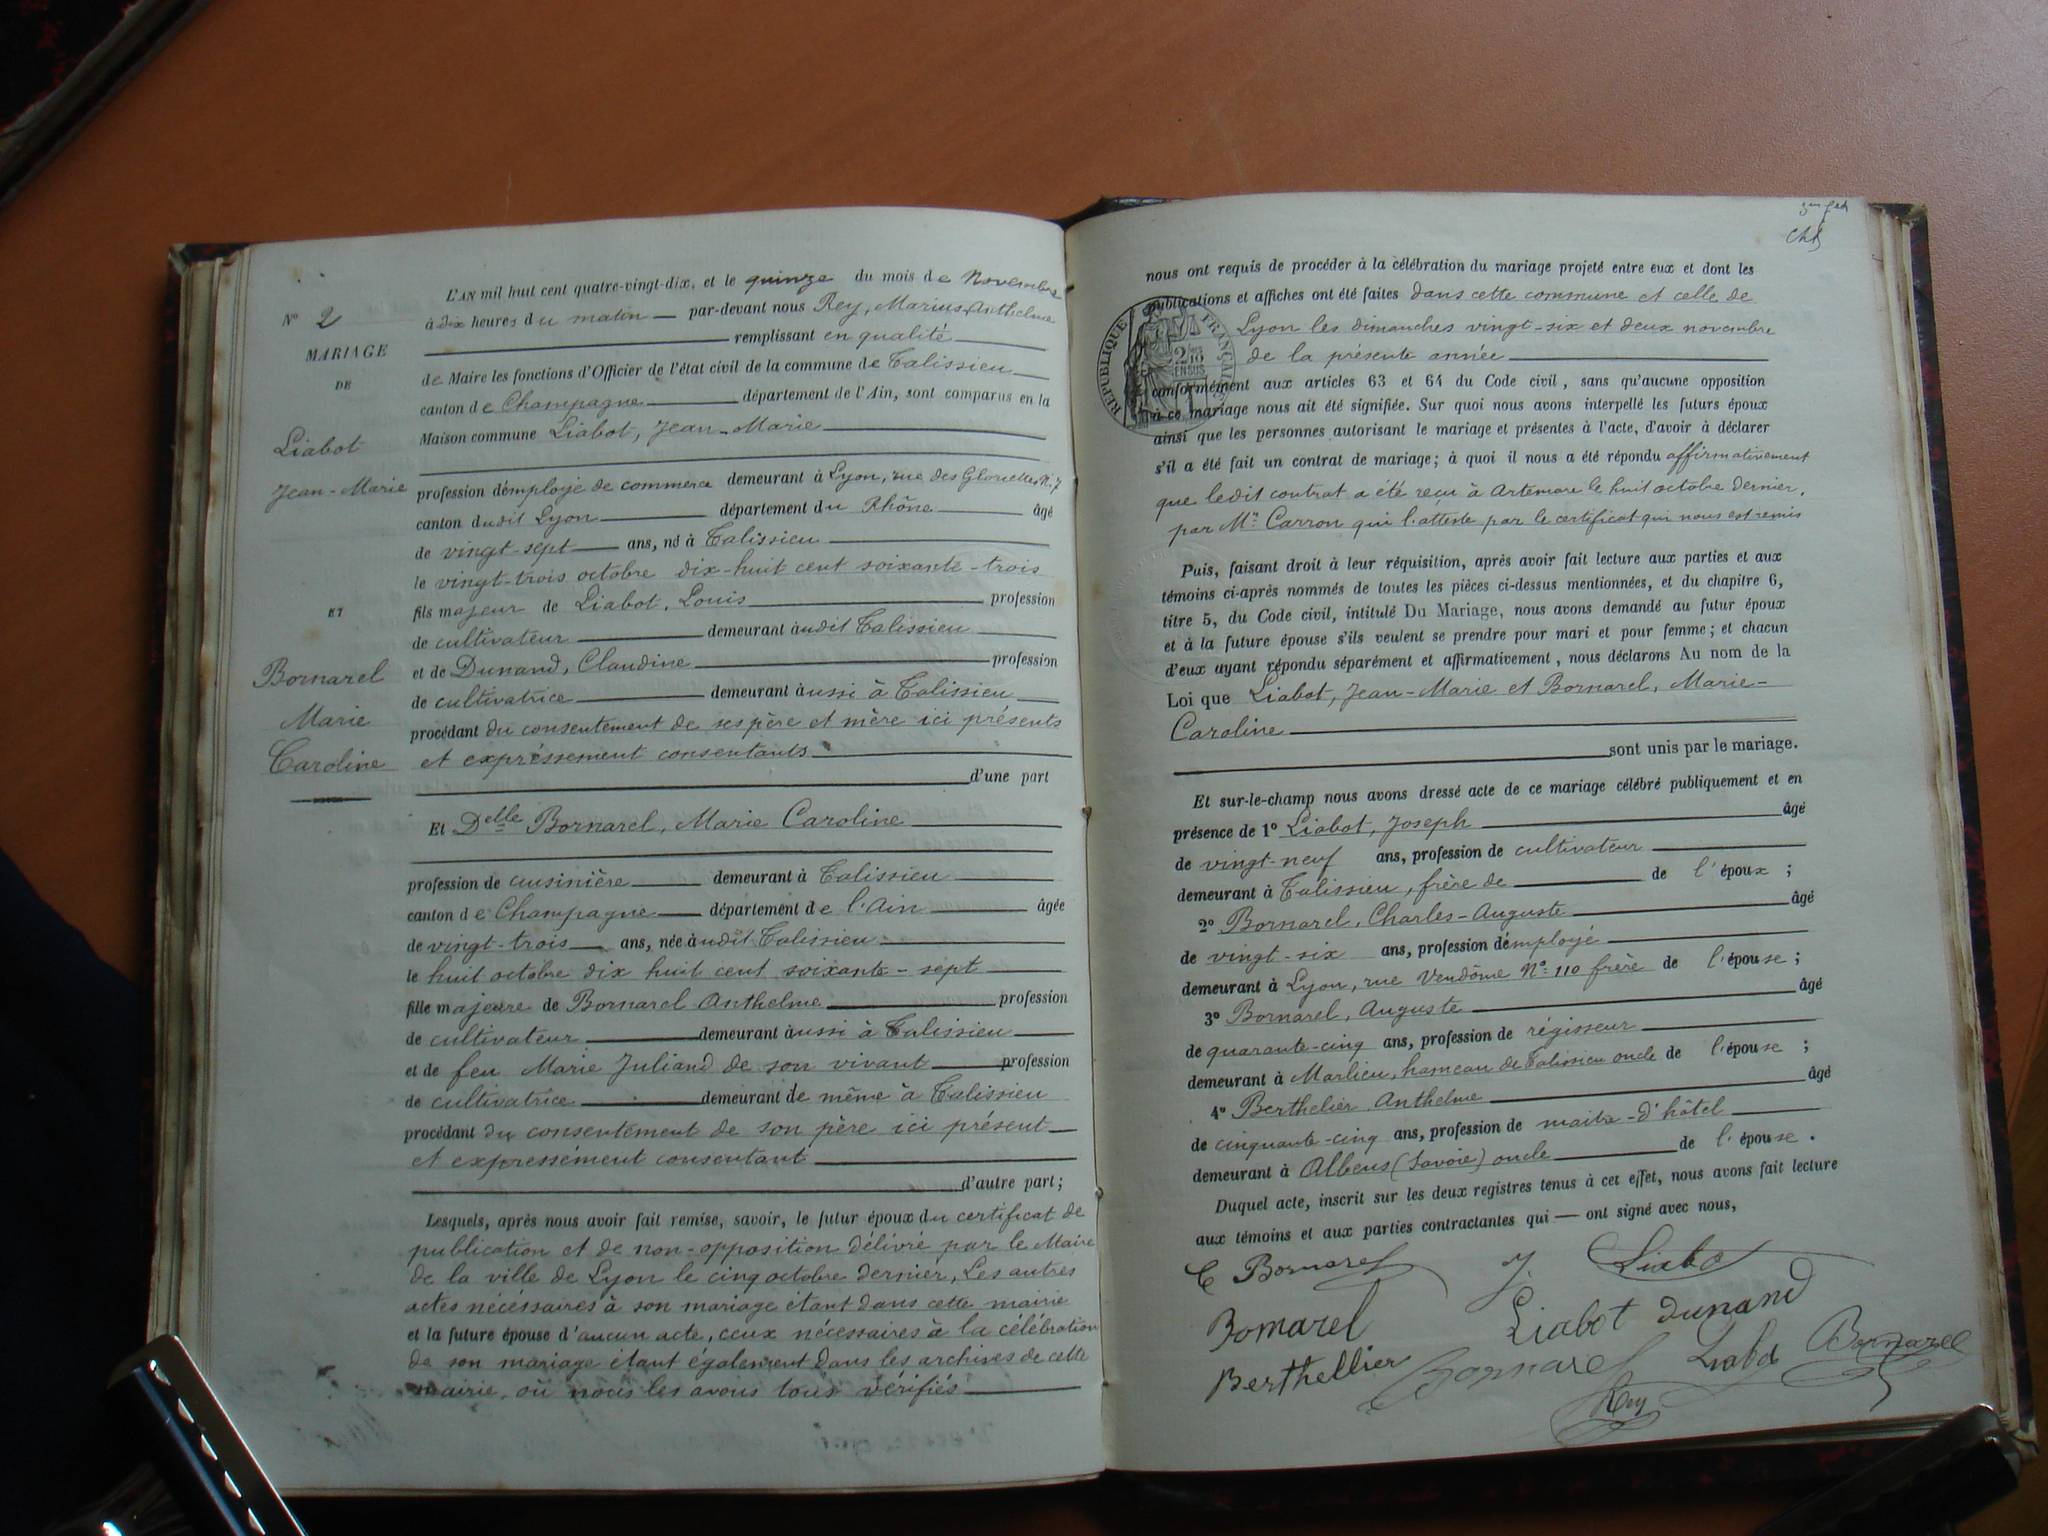 N° 2
MARIAGE
DE
Liabot
Jean-Marie
ET
Bornarel
Marie
Caroline
L'AN mil huit cent quatre-vingt-dix, et le quinze du mois de Novembre
à dix heures du matin par-devant nous Rey, Marius Anthelme
remplissant en qualité
de Maire les fonctions d'Officier de l'état civil de la commune de Talissieu
canton de Champagne département de l'Ain, sont comparus en la
Maison commune Liabot, Jean-Marie
profession d'employé de commerce demeurant à Lyon, rue des Gloriettes, N. 7
canton dudit Lyon département du Rhône âgé
de vingt-sept ans, né à Talissieu
le vingt-trois octobre dix-huit cent soixante-trois
fils majeur de Liabot, Louis profession
de cultivateur demeurant audit Talissieu
et de Dunand, Claudine profession
de cultivatrice demeurant aussi à Talissieu
procédant du consentement de ses père et mère ici présents
et expressement consentants
d'une part
Et Delle Bornarel, Marie Caroline
profession de cuisinière demeurant à Talissieu
canton de Champagne département de l'Ain âgée
de vingt-trois ans, née audit Talissieu
le huit octobre dix huit cent soixante-sept
fille majeure de Bornarel Anthelme profession
de cultivateur demeurant aussi à Talissieu
et de feu Marie Juliand de son vivant profession
de cultivatrice demeurant de même à Talissieu
procédant du consentement de son père ici présent
et expressément consentant
d'autre part;
Lesquels, après nous avoir fait remise, savoir, le futur époux du certificat de
publication et de non-opposition délivré par le Maire
de la ville de Lyon le cinq octobre dernier, Les autres
actes nécéssaires à son mariage étant dans cette mairie
et la future épouse d'aucun acte, ceux nécessaires à la célébration
de son mariage étant également dans les archives de cette
mairie, où nous les avons tous vérifiés
nous ont requis de procéder à la célébration du mariage projeté entre eux et dont les
publications et affiches ont été faites dans cette commune et celle de
Lyon les dimanches vingt-six et deux novembre
de la présente année
RÉPUBLIQUE FRANÇAISE
conformément aux articles 63 et 64 du Code civil, sans qu'aucune opposition
à ce mariage nous ait été signifiée. Sur quoi nous avons interpellé les futurs époux
ainsi que les personnes autorisant le mariage et présentes à l'acte, d'avoir à déclarer
s'il a été fait un contrat de mariage; à quoi il nous a été répondu affirmativement
que ledit contrat a été reçu à Artemare le huit octobre dernier,
par Me Carron qui l'atteste par le certificat qui nous est remis
Puis, faisant droit à leur réquisition, après avoir fait lecture aux parties et aux
témoins ci-après nommés de toutes les pièces ci-dessus mentionnées, et du chapitre 6,
titre 5, du Code civil, intitulé Du Mariage, nous avons demandé au futur époux
et à la future épouse s'ils veulent se prendre pour mari et pour femme; et chacun
d'eux ayant répondu séparément et affirmativement, nous déclarons Au nom de la
Loi que Liabot, Jean-Marie et Bornarel, Marie-
Caroline
sont unis par le mariage.
Et sur-le-champ nous avons dressé acte de ce mariage célébré publiquement et en
présence de 1° Liabot, Joseph âgé
de vingt-neuf ans, profession de cultivateur
demeurant à Talissieu, frère de de l'époux;
2° Bornarel, Charles-Auguste âgé
de vingt-six ans, profession d'employé
demeurant à Lyon, rue Vendôme N° 110 frère de l'épouse;
3° Bornarel, Auguste âgé
de quarante-cinq ans, profession de régisseur
demeurant à Marlieu, hameau de Talissieu oncle de l'épouse;
4° Berthelier Anthelme âgé
de cinquante-cinq ans, profession de maitre-d'hôtel
demeurant à Albens (Savoie) oncle de l'épouse.
Duquel acte, inscrit sur les deux registres tenus à cet effet, nous avons fait lecture
aux témoins et aux parties contractantes qui — ont signé avec nous,
C Bornarel J. Liabot
Bornarel Liabot Dunand
Berthellier Bornarel Liabot Bornarel
Rey